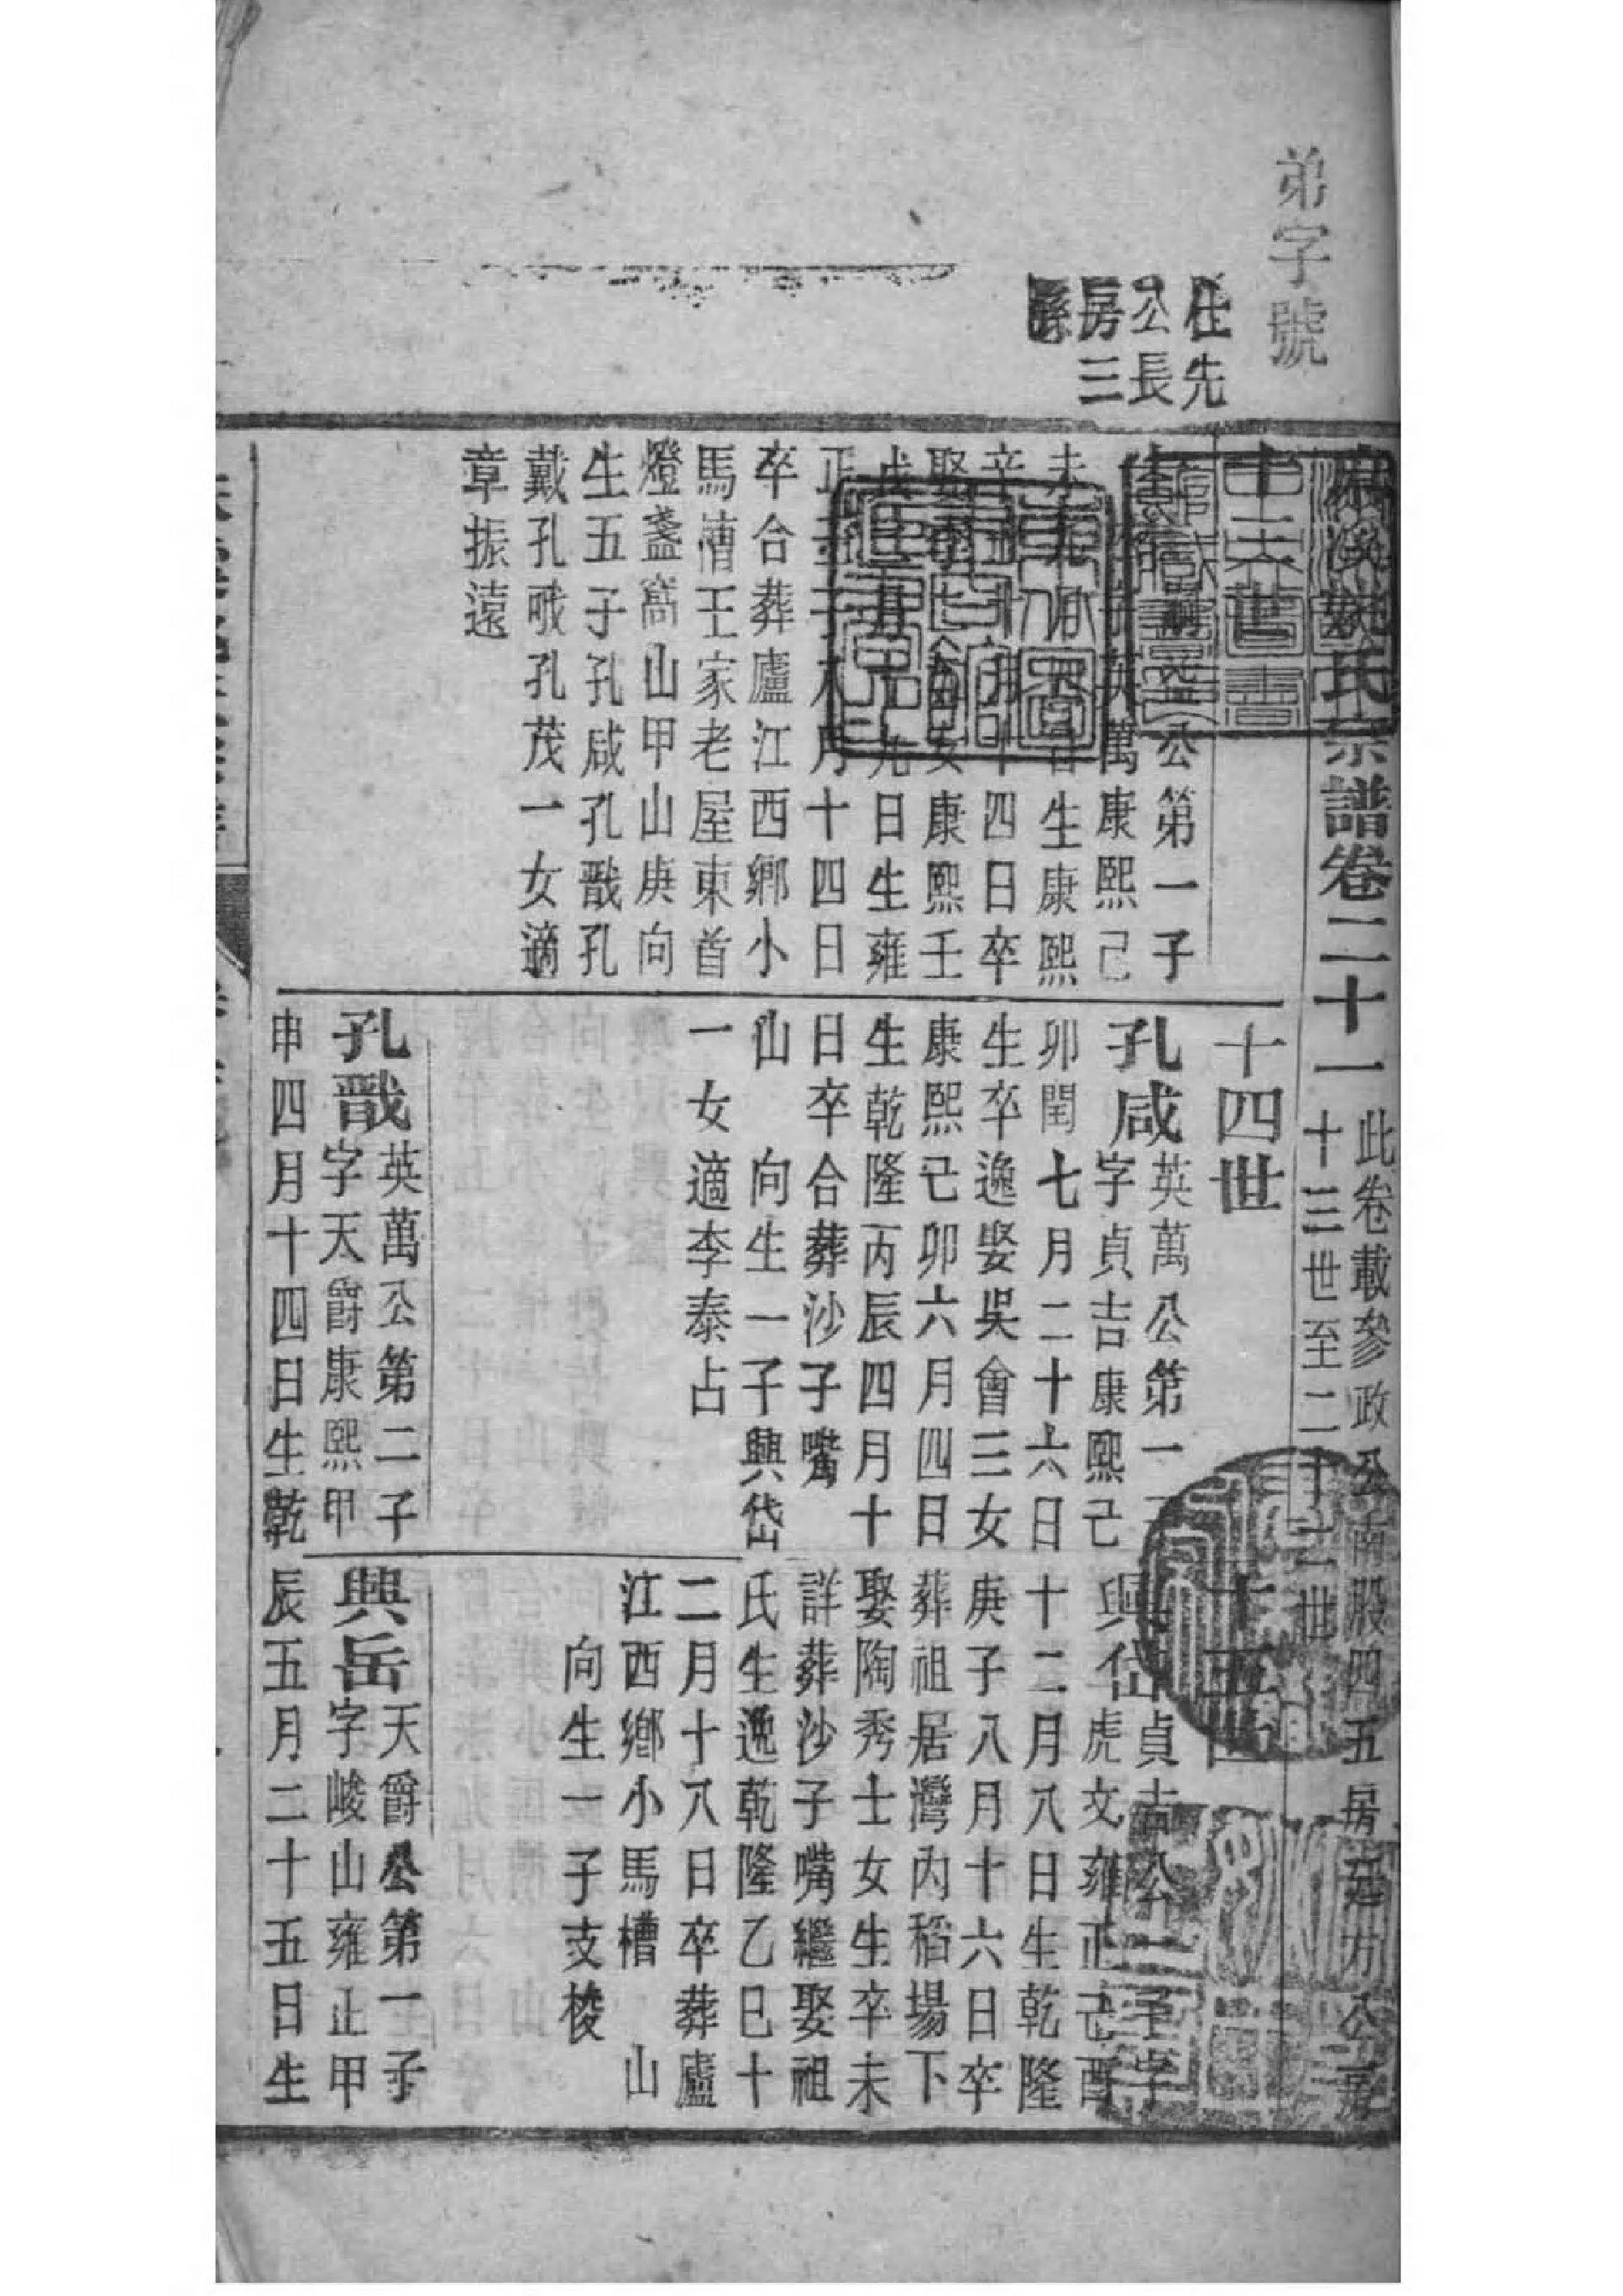 弟字號
柱先
公長
房三
氏宗譜卷二十一
此卷載參政公南股四五房
十三世至二十二世
十三世
公第一子
英萬康熙己
未 生康熙
辛 月十四日卒
娶 女康熙壬
戌 月 九日生雍
正 子 月十四日
卒合葬廬江西鄉小
馬漕王家老屋東首
燈盞窩山甲山庚向
生五子孔咸孔戬孔
戴孔哦孔茂一女適
章振遠
十四世
孔咸英萬公第一
字貞吉康熙己
卯閏七月二十六日
生卒逸娶吳會三女
康熙己卯六月四日
生乾隆丙辰四月十
日卒合葬沙子嘴
山 向生一子興岱
一女適李泰占
孔戬英萬公第二子
字天爵康熙甲
申四月十四日生乾
十五世
興岱貞吉公一子字
虎文雍正己酉
十二月八日生乾隆
庚子八月十六日卒
葬祖居灣內稻場下
娶陶秀士女生卒未
詳葬沙子嘴繼娶祖
氏生逸乾隆乙巳十
二月十八日卒葬廬
江西鄉小馬槽 山
向生一子支梭
興岳天爵公第一子
字峻山雍正甲
辰五月二十五日生